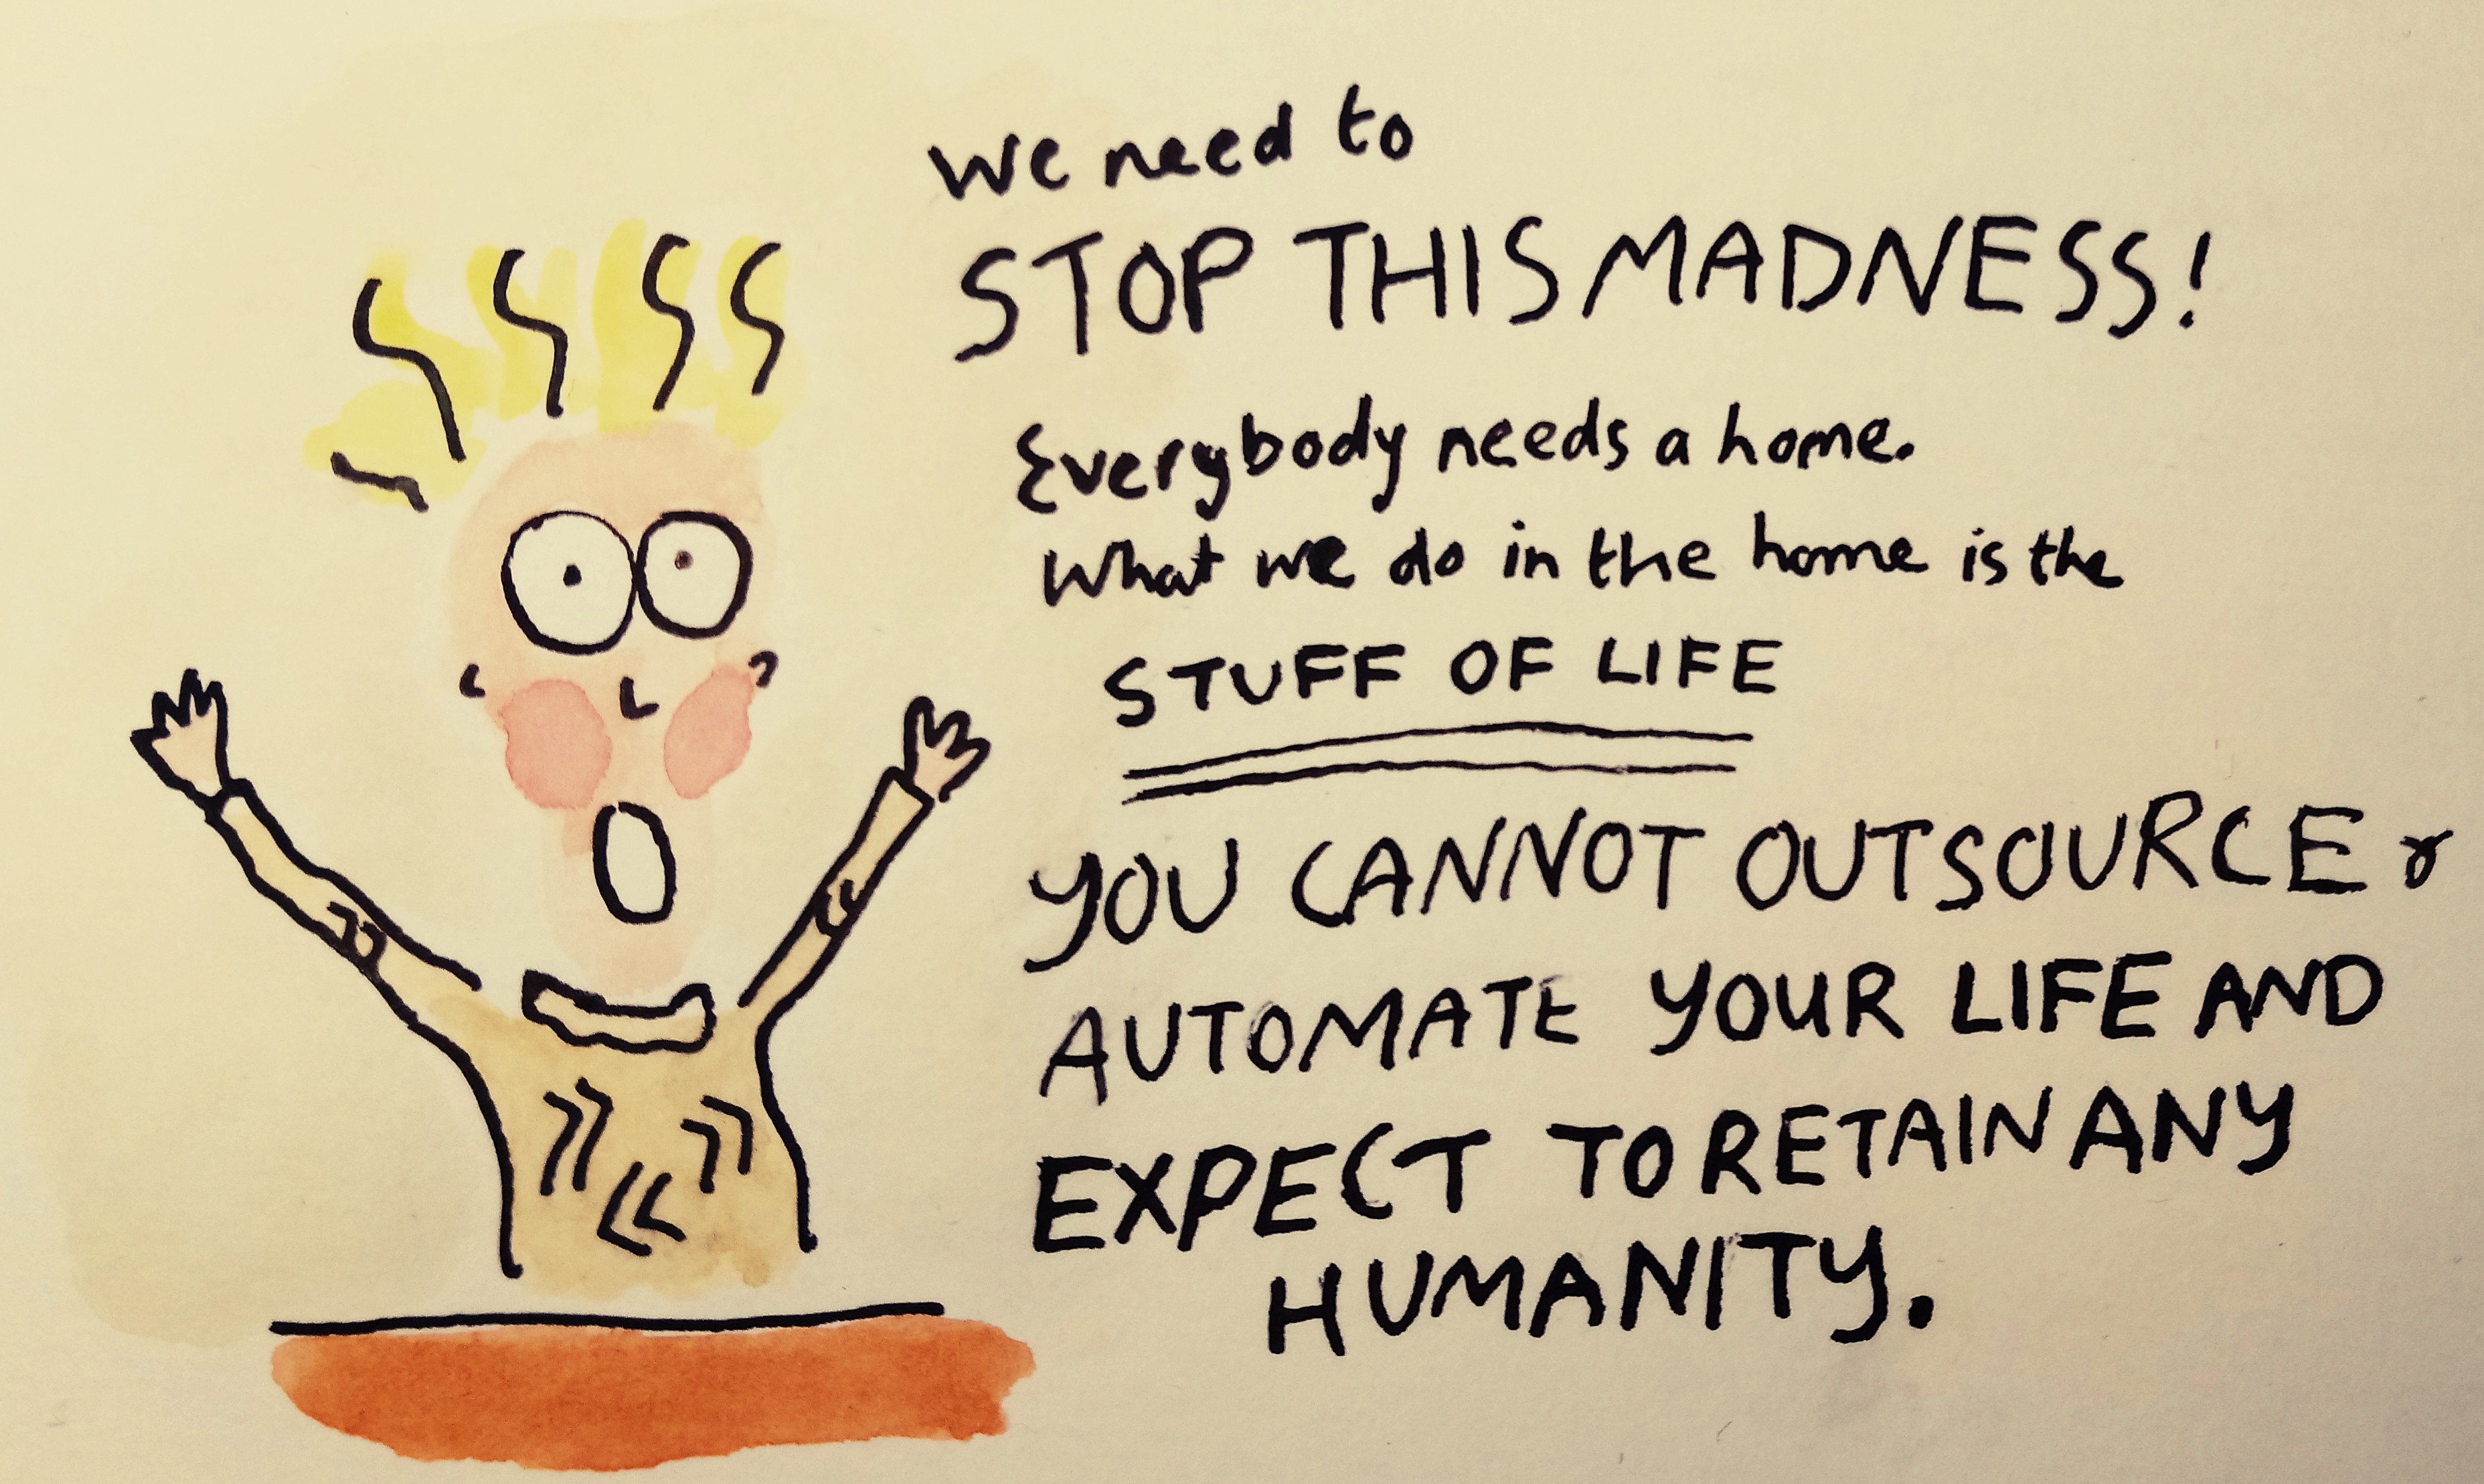 We need to
STOP THIS MADNESS!
Everybody needs a home.
What we do in the home is the
STUFF OF LIFE
YOU CANNOT OUTSOURCE &
AUTOMATE YOUR LIFE AND
EXPECT TO RETAIN ANY
HUMANITY.